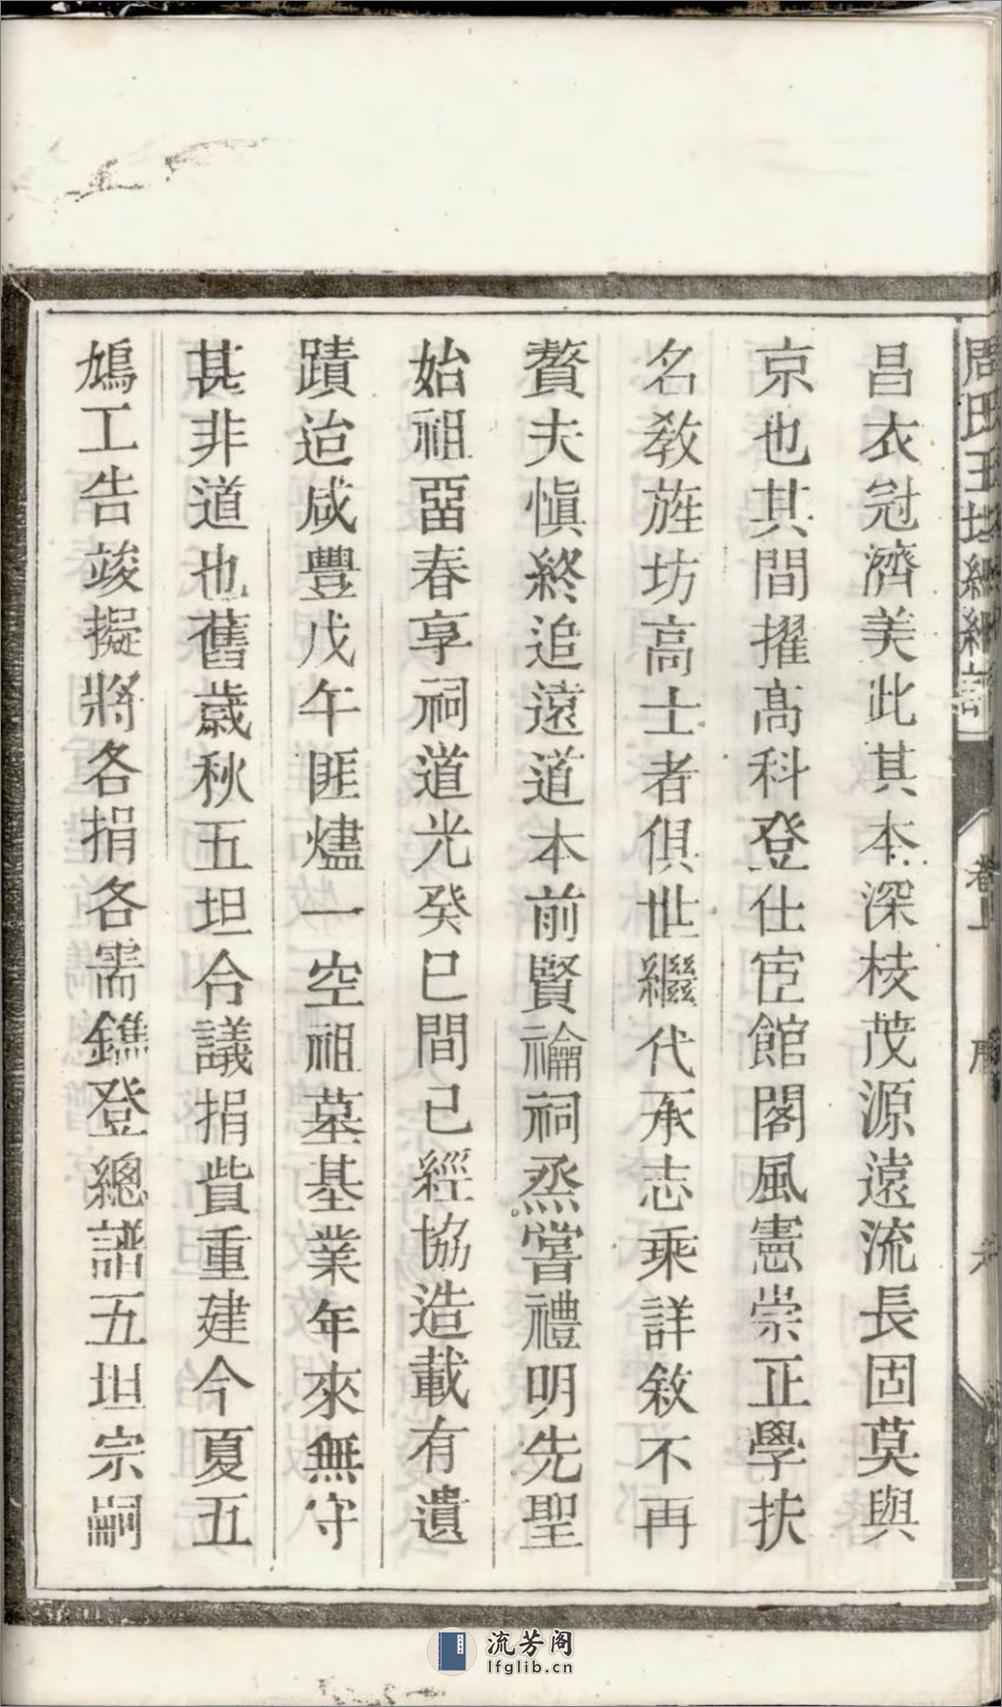 昌衣冠濟美此其本深枝茂源遠流長固莫與
京也其間擢高科登仕宦館閣風憲崇正學扶
名教旌坊高士者俱世繼代承志乘詳敘不再
贅夫慎終追遠道本前賢禴祠烝嘗禮明先聖
始祖畱春享祠道光癸巳間已經協造載有遺
蹟迨咸豐戊午匪燼一空祖墓基業年來無守
甚非道也舊歲秋五坦合議捐貲重建今夏五
鳩工告竣擬將各捐各需鐫登總譜五坦宗嗣
卷上
序
流芳阁
lfglib.cn